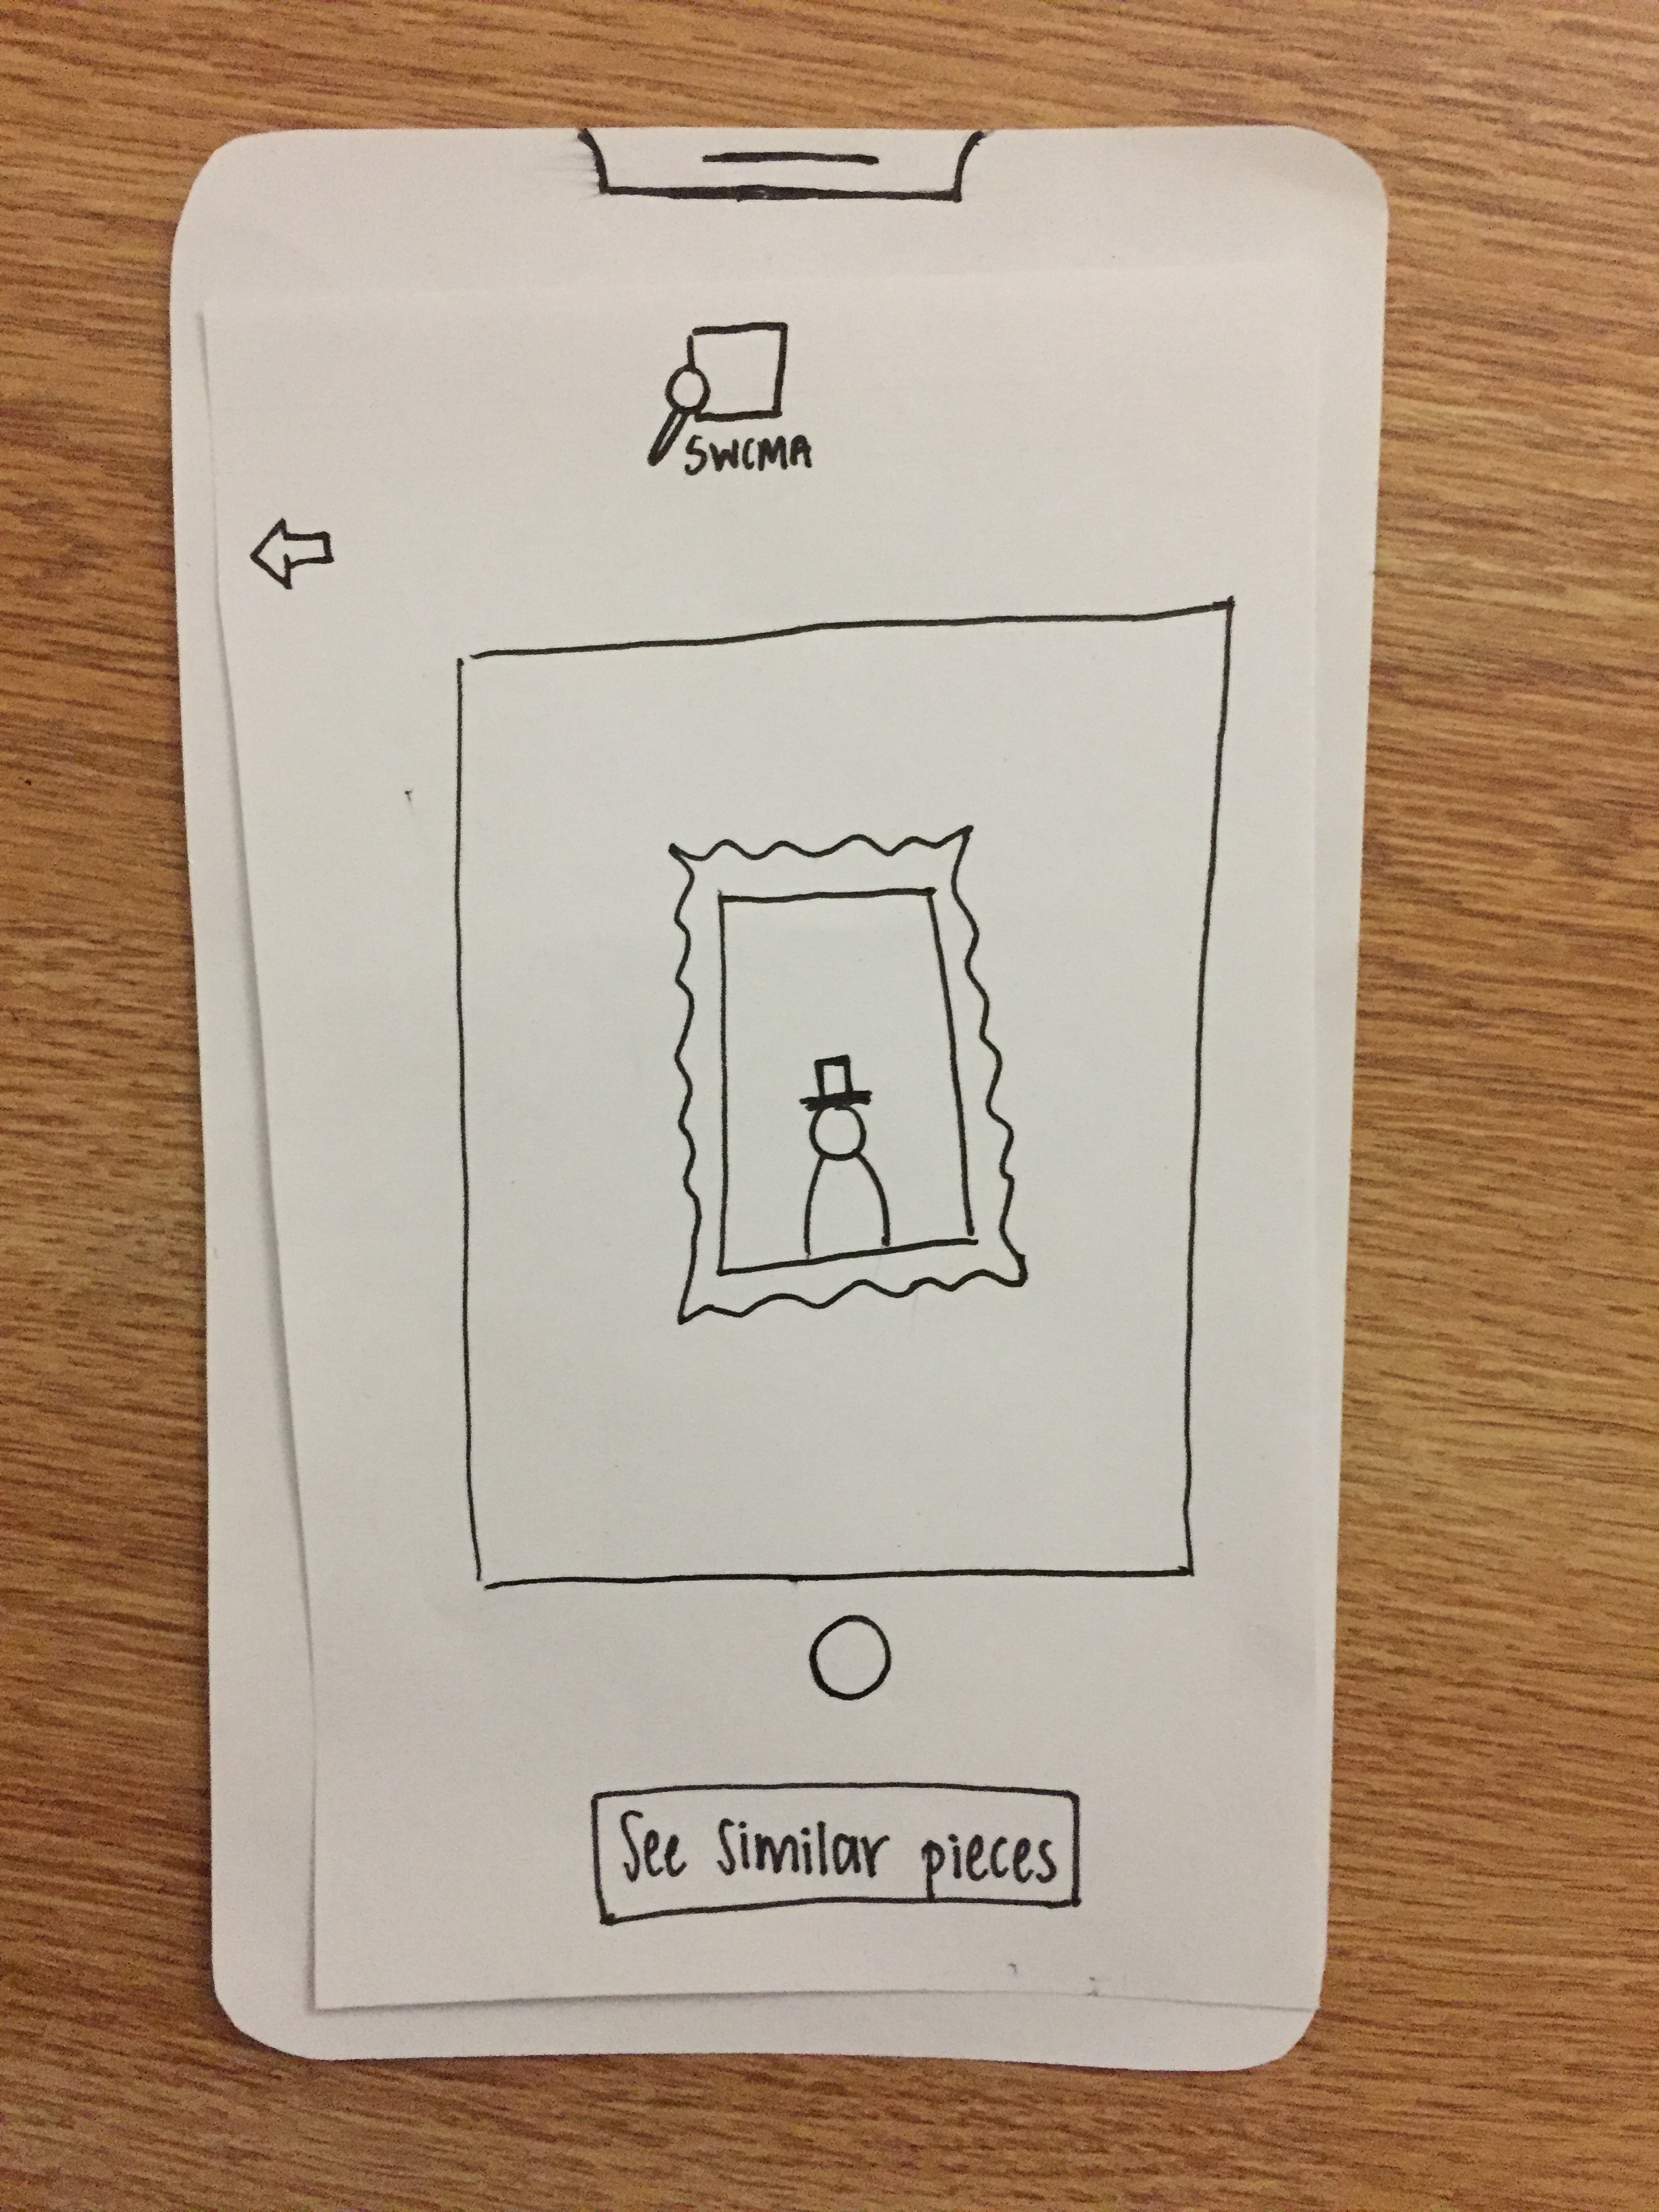 SWCMA
See similar pieces